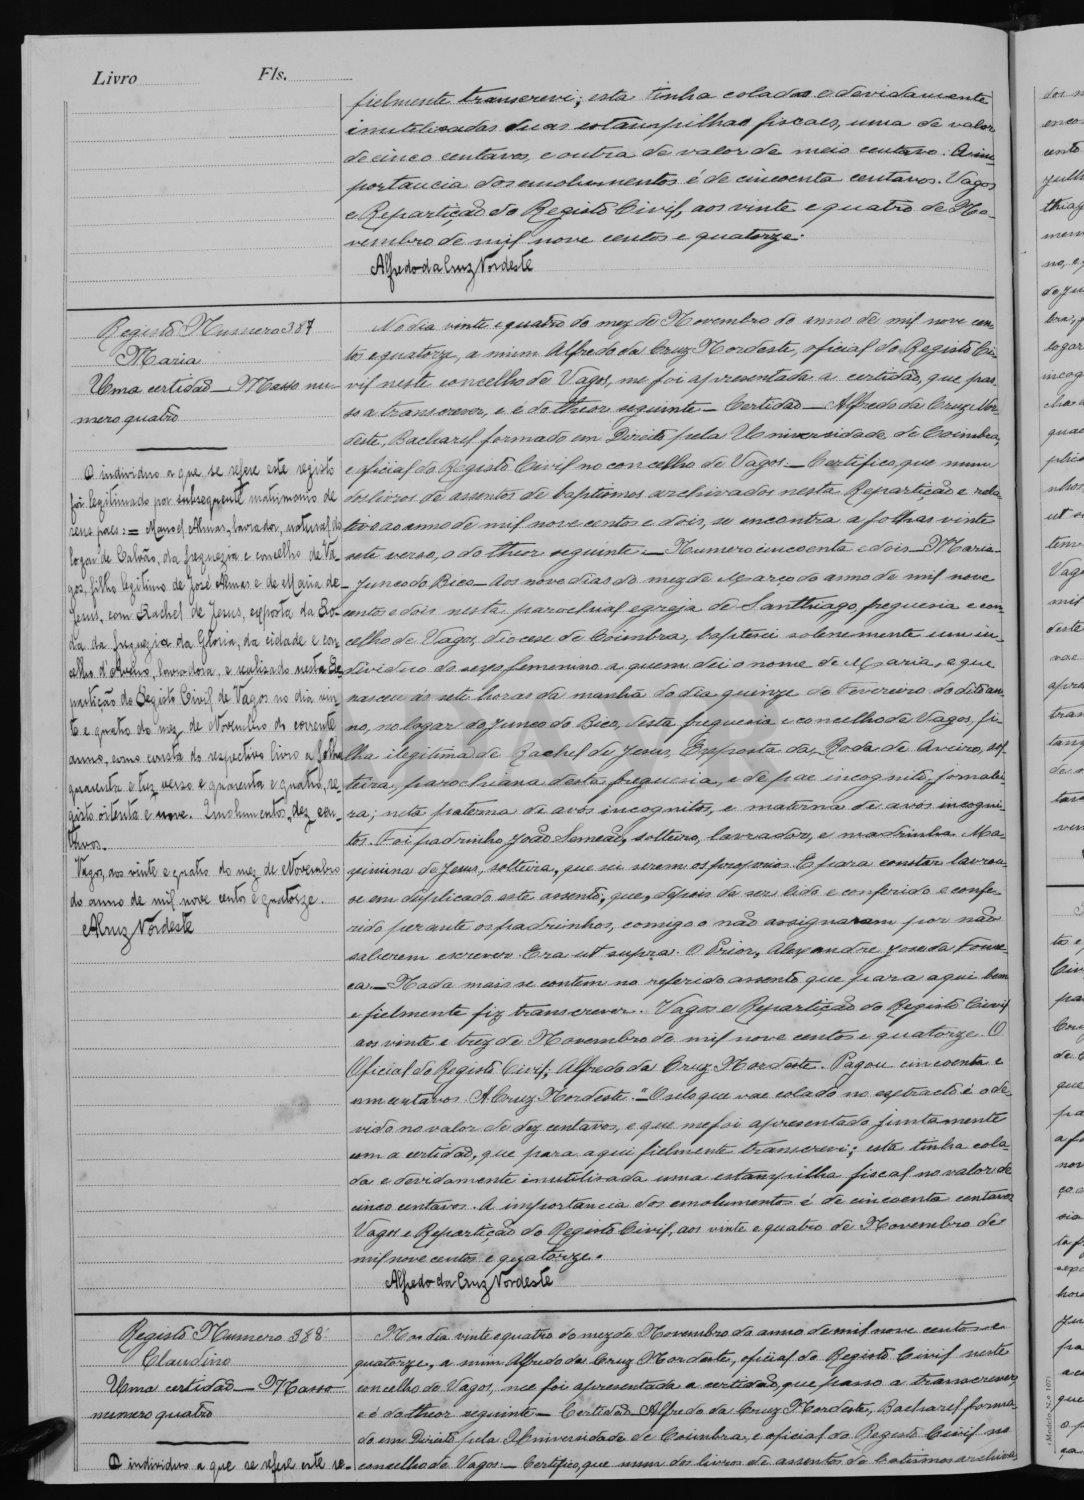 Livro Fls.
fielmente transcrevi; esta tinha coladas e devidamente
inutilisadas duas estampilhas fiscaes, uma de valor
de cinco centavos, e outra de valor de meio centavo. A im-
portancia dos emolumentos é de cincoenta centavos. Vagos
e Repartição do Registo Civil, aos vinte e quatro de No-
vembro de mil nove centos e quatorze.
Alfredo da Cruz Nordeste
Registo Numero 387
Maria
Uma certidão — Masso nu-
mero quatro
O individuo a que se refere este registo
foi legitimado por subsequente matrimonio de
seus paes: = Manoel Almas, lavrador, natural do
logar de Calvão, da freguezia e concelho de Va-
gos, filho legitimo de José Almas e de Maria de
Jesus, com Rachel de Jesus, exposta da Ro-
da da freguezia da Gloria, da cidade e con-
celho d'Aveiro, lavradora, e realisado nesta Re-
partição do Registo Civil de Vagos no dia vin-
te e quatro do mez de Novembro do corrente
anno, como consta do respectivo livro a folhas
quarenta e tez verso e quarenta e quatro, re-
gisto oitenta e nove. Emolumentos, dez cen-
tavos.
Vagos, aos vinte e quatro do mez de Novembro
do anno de mil nove centos e quatorze.
ACruz Nordeste
No dia vinte e quatro do mez de Novembro do anno de mil nove cen-
tos e quatorze, a mim Alfredo da Cruz Nordeste, oficial do Registo Ci-
vil neste concelho de Vagos, me foi apresentada a certidão, que pas-
so a transcrever, e é do theor seguinte — Certidão — Alfredo da Cruz Nor-
deste, Bacharel formado em Direito pela Universidade de Coimbra,
e oficial do Registo Civil no concelho de Vagos: — Certifico, que num
dos livros de assentos de baptismos archivados nesta Repartição e rela-
tivo ao anno de mil nove centos e dois, se encontra a folhas vinte
sete verso, o do theor seguinte: — Numero cincoenta e dois — Maria —
— Junco do Bico — Aos nove dias do mez de Março do anno de mil nove
centos e dois nesta parochial egreja de Santhiago, freguesia e con-
celho de Vagos, diocese de Coimbra, baptisei solenemente um in-
dividuo do sexo femenino a quem dei o nome de Maria, e que
nasceu ás sete horas da manhã do dia quinze de Fevereiro do dito an-
no, no logar do Junco do Bico, desta freguesia e concelho de Vagos, fi-
lha ilegitima de Rachel de Jesus, Exposta da Roda de Aveiro, sol-
teira, parochiana desta freguesia, e de pae incognito, jornalei-
ra; neta paterna de avós incognitos, e materna de avós incogni-
tos. Foi padrinho, João Semeão, solteiro, lavrador, e madrinha Ma-
ximina de Jesus, solteira, que sei serem os proprios. E para constar lavrou-
se em duplicado este assento, que, depois de ser lido e conferido e confe-
rido perante os padrinhos, comigo o não assignaram por não
saberem escrever. Era ut supra. O Prior, Alexandre José da Fonse-
ca. — Nada mais se contem no referido assento que para aqui bem
e fielmente fiz transcrever. Vagos e Repartição do Registo Civil
aos vinte e trez de Novembro de mil nove centos e quatorze. O
Oficial do Registo Civil, Alfredo da Cruz Nordeste. Pagou cincoenta e
um centavos. ACruz Nordeste." — O selo que vae colado no extracto é o de-
vido no valor de dez centavos, e que me foi apresentado juntamente
com a certidão, que para aqui fielmente transcrevi; esta tinha cola-
da e devidamente inutilisada uma estampilha fiscal no valor de
cinco centavos. A importancia dos emolumentos é de cincoenta centavos
Vagos e Repartição do Registo Civil, aos vinte e quatro de Novembro de
mil nove centos e quatorze.
Alfredo da Cruz Nordeste
Registo Numero 388
Claudino
Uma certidão — Masso
numero quatro
O individuo a que se refere este re-
Nos dia vinte e quatro do mez de Novembro do anno de mil nove centos e
quatorze, a mim Alfredo da Cruz Nordeste, oficial do Registo Civil neste
concelho de Vagos, me foi apresentada a certidão, que passo a transcrever,
e é do theor seguinte — Certidão — Alfredo da Cruz Nordeste, Bacharel forma-
do em Direito pela Universidade de Coimbra, e oficial do Registo Civil no
concelho de Vagos: — Certifico, que num dos livros de assentos de batismos archiva-